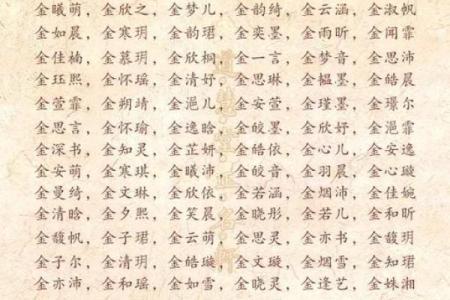 金曦萌，金欣之，金梦儿，金韵绮，金云涵，金淑帆
金如晨，金寒玥，金韵珺，金奕墨，金雨昕，金闻霏
金佳楠，金慕玥，金欣桐，金一言，金梦音，金思沛
金珏熙，金怀瑶，金清妤，金思琳，金韫墨，金皓晨
金萱霏，金朔靖，金滟儿，金安萱，金瑾墨，金璟尔
金思言，金怀瑜，金逸晗，金皎墨，金欣妤，金滟霏
金深书，金知灵，金芷妍，金皓依，金心儿，金安逸
金安萌，金寒琪，金曦沛，金皎音，金羽晨，金心璇
金曼绮，金文琳，金欣依，金若涵，金烟沛，金佳婉
金清晗，金夕熙，金笑晨，金晓彤，金若儿，金和昕
金馥帆，金子珺，金云萌，金思灵，金亦书，金馥玥
金子尔，金清玥，金皓璇，金文璇，金烟雪，金知珺
金亦沛，金和瑶，金如雪，金晓灵，金逢艺，金姝湘